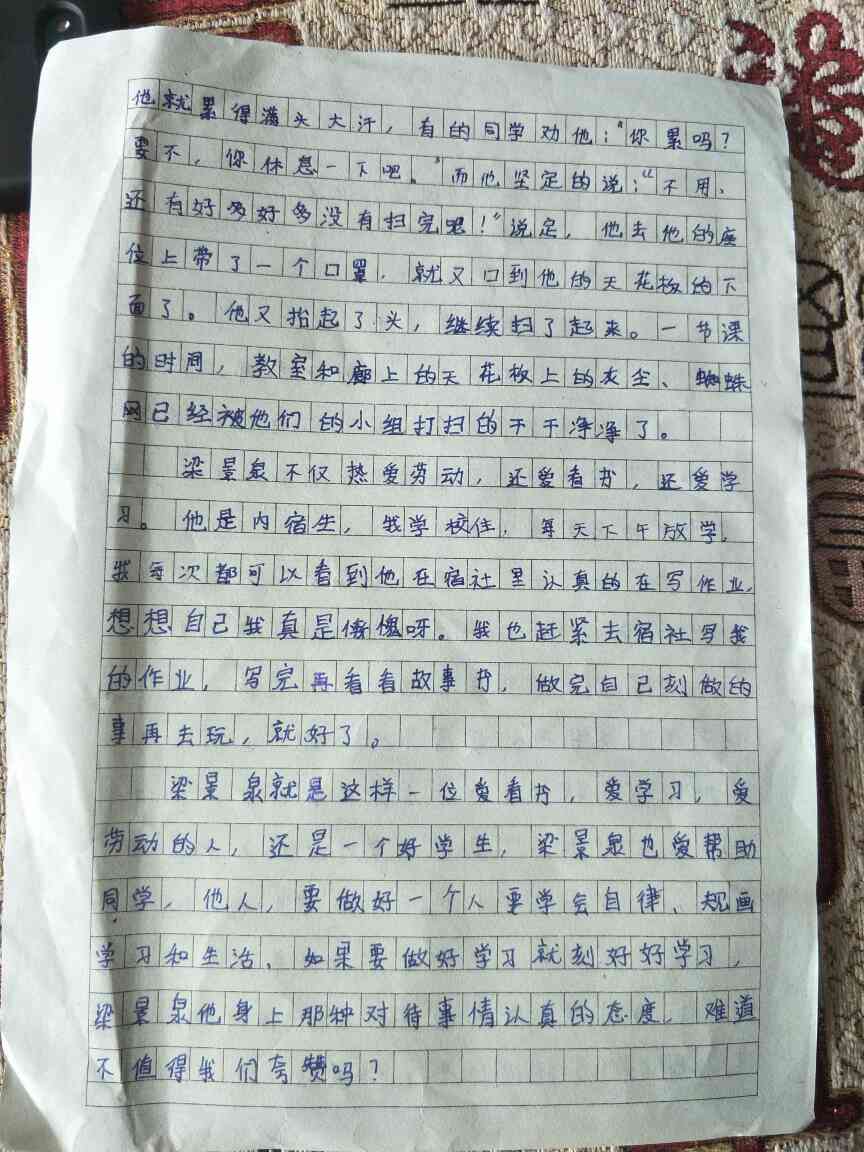 他就累得满头大汗，有的同学劝他："你累吗？
要不，你休息一下吧。"而他坚定的说："不用、
还有好多好多没有扫完呢！"说完，他去他的座
位上带了一个口罩，就又口到他的天花板的下
面了。他又抬起了头，继续扫了起来。一节课
的时间，教室和廊上的天花板上的灰尘、蜘蛛
网已经被他们的小组打扫的干干净净了。
梁景泉不仅热爱劳动，还爱看书，还爱学
习。他是内宿生，我学校住，每天下午放学，
我每次都可以看到他在宿社里认真的在写作业，
想想自己我真是惭愧呀。我也赶紧去宿社写我
的作业，写完再看看故事书，做完自己刻做的
事再去玩，就好了。
梁景泉就是这样一位爱看书，爱学习，爱
劳动的人，还是一个好学生，梁景泉也爱帮助
同学，他人，要做好一个人要学会自律、规画
学习和生活、如果要做好学习就刻好好学习，
梁景泉他身上那种对待事情认真的态度，难道
不值得我们夸赞吗？